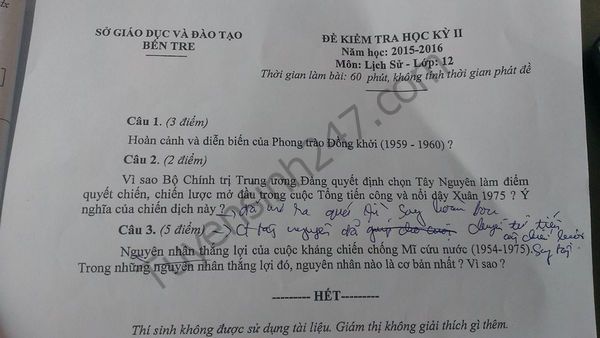 SỞ GIÁO DỤC VÀ ĐÀO TẠO
BẾN TRE
ĐỀ KIỂM TRA HỌC KỲ II
Năm học: 2015-2016
Môn: Lịch Sử - Lớp: 12
Thời gian làm bài: 60 phút, không tính thời gian phát đề
Câu 1. (3 điểm)
Hoàn cảnh và diễn biến của Phong trào Đồng khởi (1959 - 1960) ?
Câu 2. (2 điểm)
Vì sao Bộ Chính trị Trung ương Đảng quyết định chọn Tây Nguyên làm điểm
quyết chiến, chiến lược mở đầu trong cuộc Tổng tiến công và nổi dậy Xuân 1975 ? Ý
nghĩa của chiến dịch này ?
Câu 3. (5 điểm)
Nguyên nhân thắng lợi của cuộc kháng chiến chống Mĩ cứu nước (1954-1975).
Trong những nguyên nhân thắng lợi đó, nguyên nhân nào là cơ bản nhất ? Vì sao ?
---------- HẾT----------
Thí sinh không được sử dụng tài liệu. Giám thị không giải thích gì thêm.
tuyensinh247.com